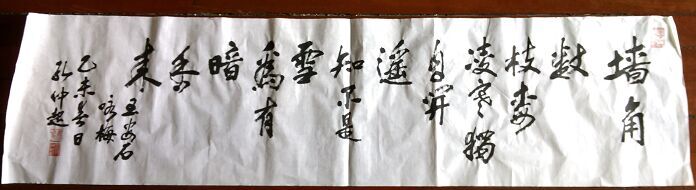 墙角
数
枝梅
凌寒獨
自開
遥
知不是
雪
為有
暗
香
来
王安石
咏梅
乙未春日
孔仲超